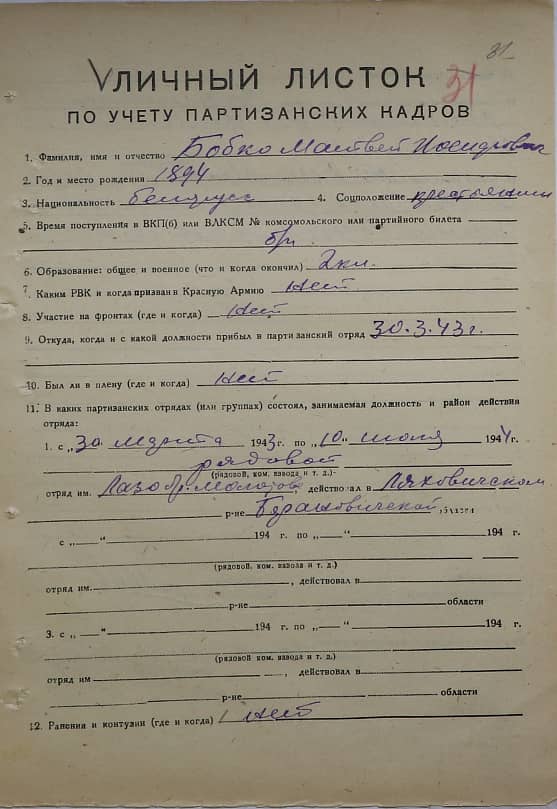 31
ЛИЧНЫЙ ЛИСТОК 31
ПО УЧЕТУ ПАРТИЗАНСКИХ КАДРОВ
1. Фамилия, имя и отчество Бобко Матвей
2. Год и место рождения 1894
3. Национальность белорус 4. Соцположение крестьянин
5. Время поступления в ВКП(б) или ВЛКСМ № комсомольского или партийного билета
б/п
6. Образование: общее и военное (что и когда окончил) 2 кл.
7. Каким РВК и когда призван в Красную Армию нет
8. Участие на фронтах (где и когда) нет
9. Откуда, когда и с какой должности прибыл в партизанский отряд 30.3.43 г.
10. Был ли в плену (где и когда) нет
11. В каких партизанских отрядах (или группах) состоял, занимаемая должность и район действия
отряда:
1. с „30" марта 1943 г. по „10" июля 1944 г.
рядовой
(рядовой, ком. взвода и т. д.)
отряд им. Лазо бр. Молотова, действовал в Ляховичском
р-не Барановичской области
с „—" 194 г. по „—" 194 г.
(рядовой, ком. взвода и т. д.)
отряд им. , действовал в
р-не области
3. с „—" 194 г. по „—" 194 г.
(рядовой, ком. взвода и т. д.)
отряд им , действовал в
р-не области
12. Ранения и контузии (где и когда) нет